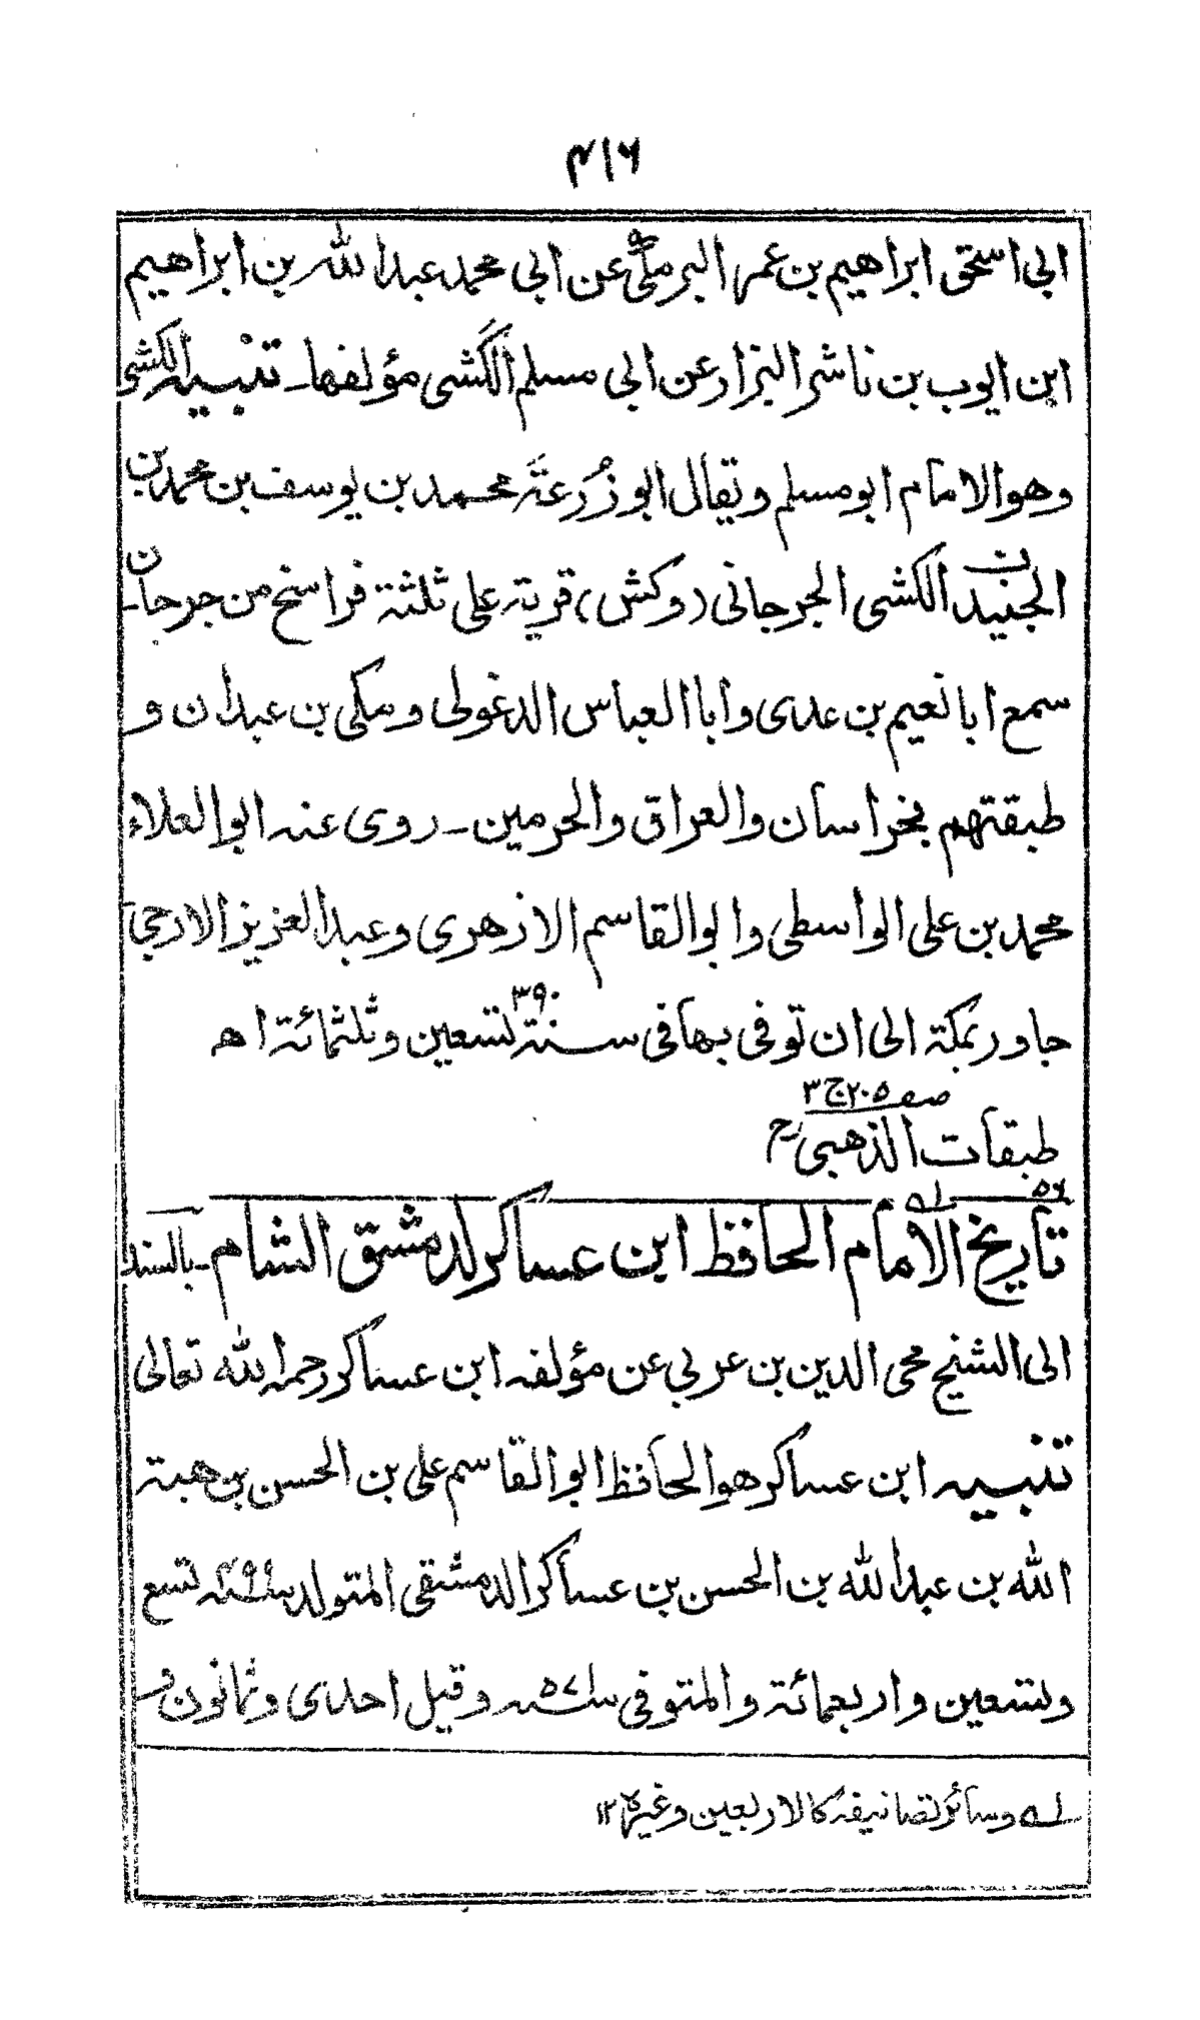 ٤١٦
ابی اسحق ابراهیم بن عمر البرمکی عن ابی محمد عبد الله بن ابراهیم
ابن ایوب بن ناشر البزار عن ابی مسلم الکشی مؤلفها۔ تنبیه الکشی
وهو الامام ابو مسلم ویقال ابو زُرعة محمد بن یوسف بن محمد بن
الجنید الکشی الجرجانی (وکش) قریة علی ثلثة فراسخ من جرجان۔
سمع ابا نعیم بن عدی وابا العباس الدغولی ومکی بن عبدان و
طبقتهم بخراسان والعراق والحرمین۔ روی عنه ابو العلاء
محمد بن علی الواسطی وابو القاسم الازهری وعبد العزیز الازجی
جاور بمکة الی ان توفی بها فی سنة ٣٩٠ تسعین وثلثمائة اھ
صفـ ٢٠٥ ج ٣
طبقات الذهبی رح
٥٦ تاریخ الامام لہ الحافظ ابن عساکر لدمشق الشام۔ بالسند
الی الشیخ محی الدین بن عربی عن مؤلفه ابن عساکر رحمه الله تعالی
تنبیه ابن عساکر هو الحافظ ابو القاسم علی بن الحسن بن هبة
الله بن عبد الله بن الحسن بن عساکر الدمشقی المتولد سنة ٤٩٩ تسع
وتسعین واربعمائة والمتوفی سنة ٥٧١ وقیل احدی وثمانون و
لہ وسائر تصانیفه کالاربعین وغیرها ١٢